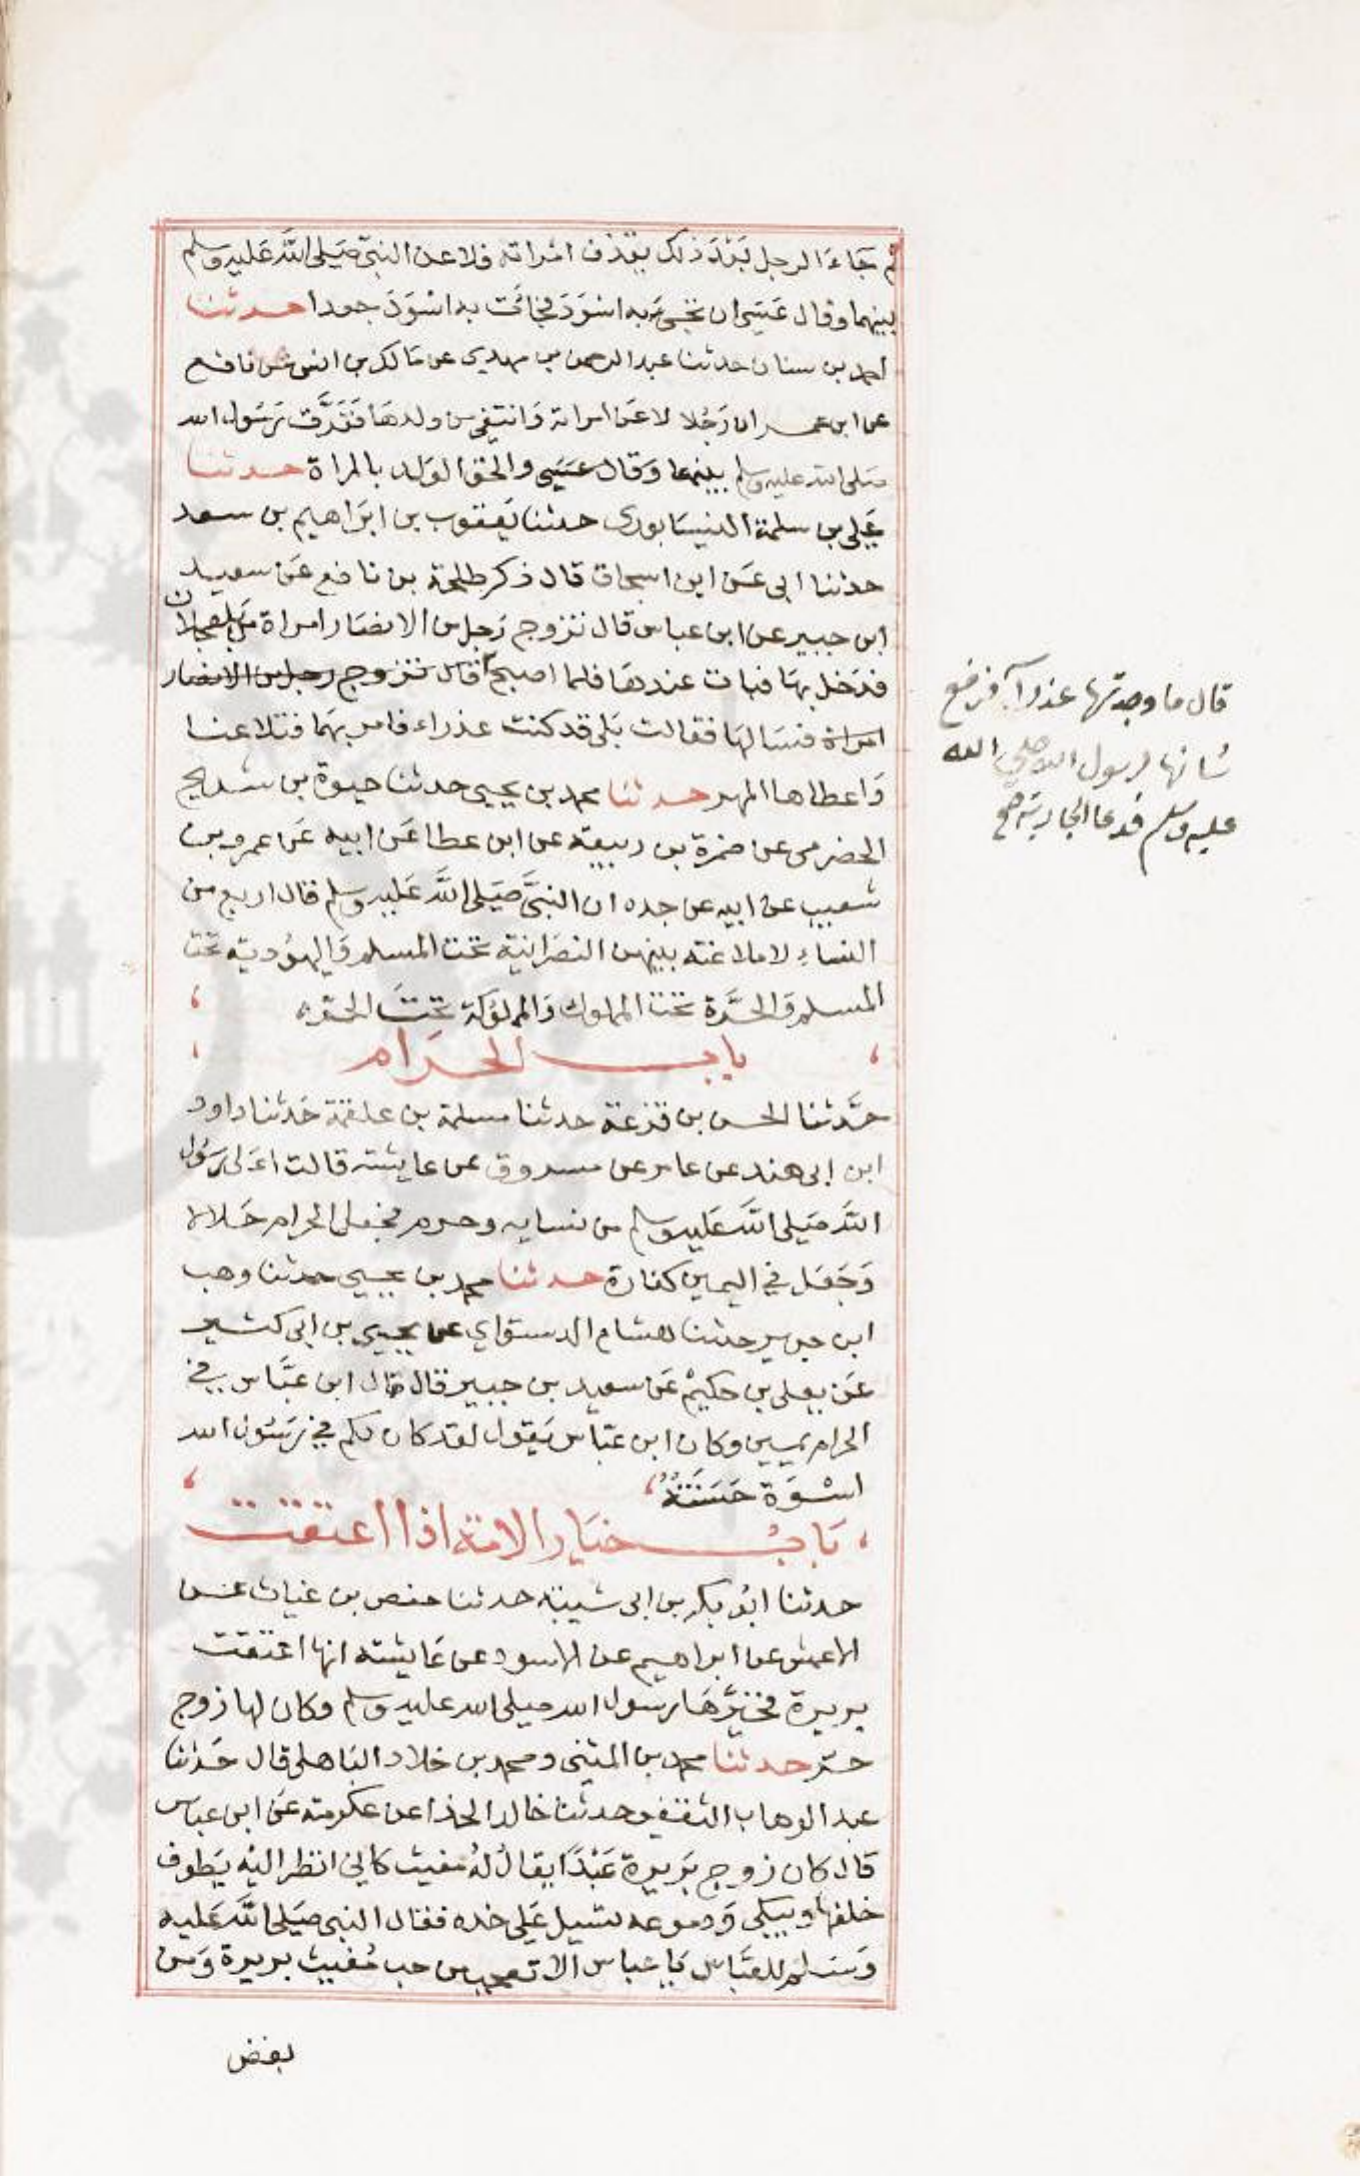 ثم جَاءَ الرجل بَعْدَ ذلك يقذف امْراته فلاعن النبيّ صَلى اللَّه عَليه وسلم
بينهما وقال عَسَى ان تجىَء به اسْوَدَ فجائت به اسْوَدَ جعدا حدثنا
احمد بن سنان حدثنا عبد الرحمن بن مهدي عن مَالك بن انس عن نافع
عن ابن عمر ان رَجُلا لاعَن امراته وَانتفي من ولدهَا فَفَرَّق رَسُول الله
صَلى الله عليه وسلم بينهما وَقال عَسَى والحق الوَلد بالمراة حدثنا
عَلي بن سلمة النيسَابوري حدثنا يَعقوب بن ابرَاهيم بن سعد
حدثنا ابي عَن ابن اسحاق قال ذكر طلحة بن نافع عَن سعيد
ابن جبير عن ابن عباس قال تزوج رَجل من الانصَار امراة من بلعجلان
فدَخل بهَا فبات عندهَا فلما اصبح قال تزوج رجل من الانصار
امراة فنسَالهَا فقالت بَلى قد كنت عذراء فامر بهَما فتلاعنا
وَاعطاها المهر حدثنا محمد بن يحيى حدثنا حيوة بن شريح
الحضرمى عن ضمرة بن ربيعة عن ابن عطا عَن ابيه عَن عمرو بن
شعيب عن ابيه عن جده ان النبيَّ صَلى اللَّه عَليه وسلم قال اربع من
النساءِ لا ملاعنة بينهن النصرَانية تحت المسلم وَاليهوُدية تحت
المسلم وَالحُرَّة تحت المملوك وَالمملوُكة تحتَ الحر
باب الحَرَام
حَدَّثنا الحسن بن قزعة حدثنا مسلمة بن علقمة حَدثنا داود
ابن ابى هند عن عامر عن مسروق عن عايشة قالت اَلى رَسُول
اللَّه صَلى اللَّه عَليه وسلم من نسايه وحرم فجعل الحرام حَلالا
وَجَعَل في اليمين كفارة حدثنا محمد بن يحيى حدثنا وهب
ابن جرير حدثنا هشام الدستواي عن يحيى بن ابى كثير
عَن يعلى بن حكيم عَن سعيد بن جبير قال قال ابن عَبَّاس في
الحرام يمين وكان ابن عَبّاس يَقول لقد كان لكم في رَسُول الله
اسْوَة حَسَنَةٌ
بَابُ خيَار الامة اذا اعتقت
حدثنا ابُو بكر بن ابى شيبة حدثنا حفص بن غياث عن
الاعمش عن ابراهيم عن الاسود عن عَايشة انها اعتقت
بريرة فخيَّرهَا رسول الله صلى الله عليه وسلم وكان لها زوج
حر حدثنا محمد بن المثنى ومحمد بن خلاد البَاهلى قال حَدثنا
عبد الوهاب الثقفي حدثنا خالد الحذا عن عكرمة عَن ابن عباس
قال كان زوج بَريرة عَبْدًا يقالُ لهُ مغيث كاني انظر اليْه يَطوف
خلفها ويبكى وَدموعه تسيل عَلى خده فقال النبى صَلى اللَّه عَليه
وَسَلم للعَبَّاس يَا عباس الا تعجب من حب مُغيث بريرة وَمن
بغض
قال ما وجدتها عذرآء فرفع
شانها لرسول الله صلى الله
عليه وسلم فدعا الجارية صح